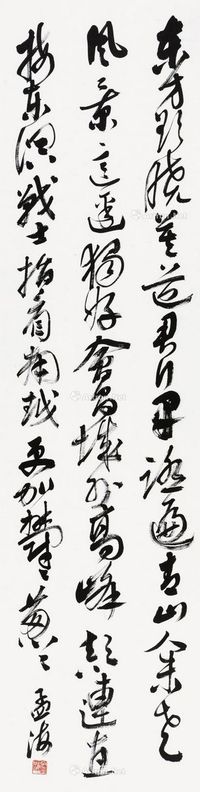 东方欲晓莫道君行早踏遍青山人未老
风景这边独好会昌城外高峰颠连直
接东溟战士指看南越更加郁郁葱葱 孟海